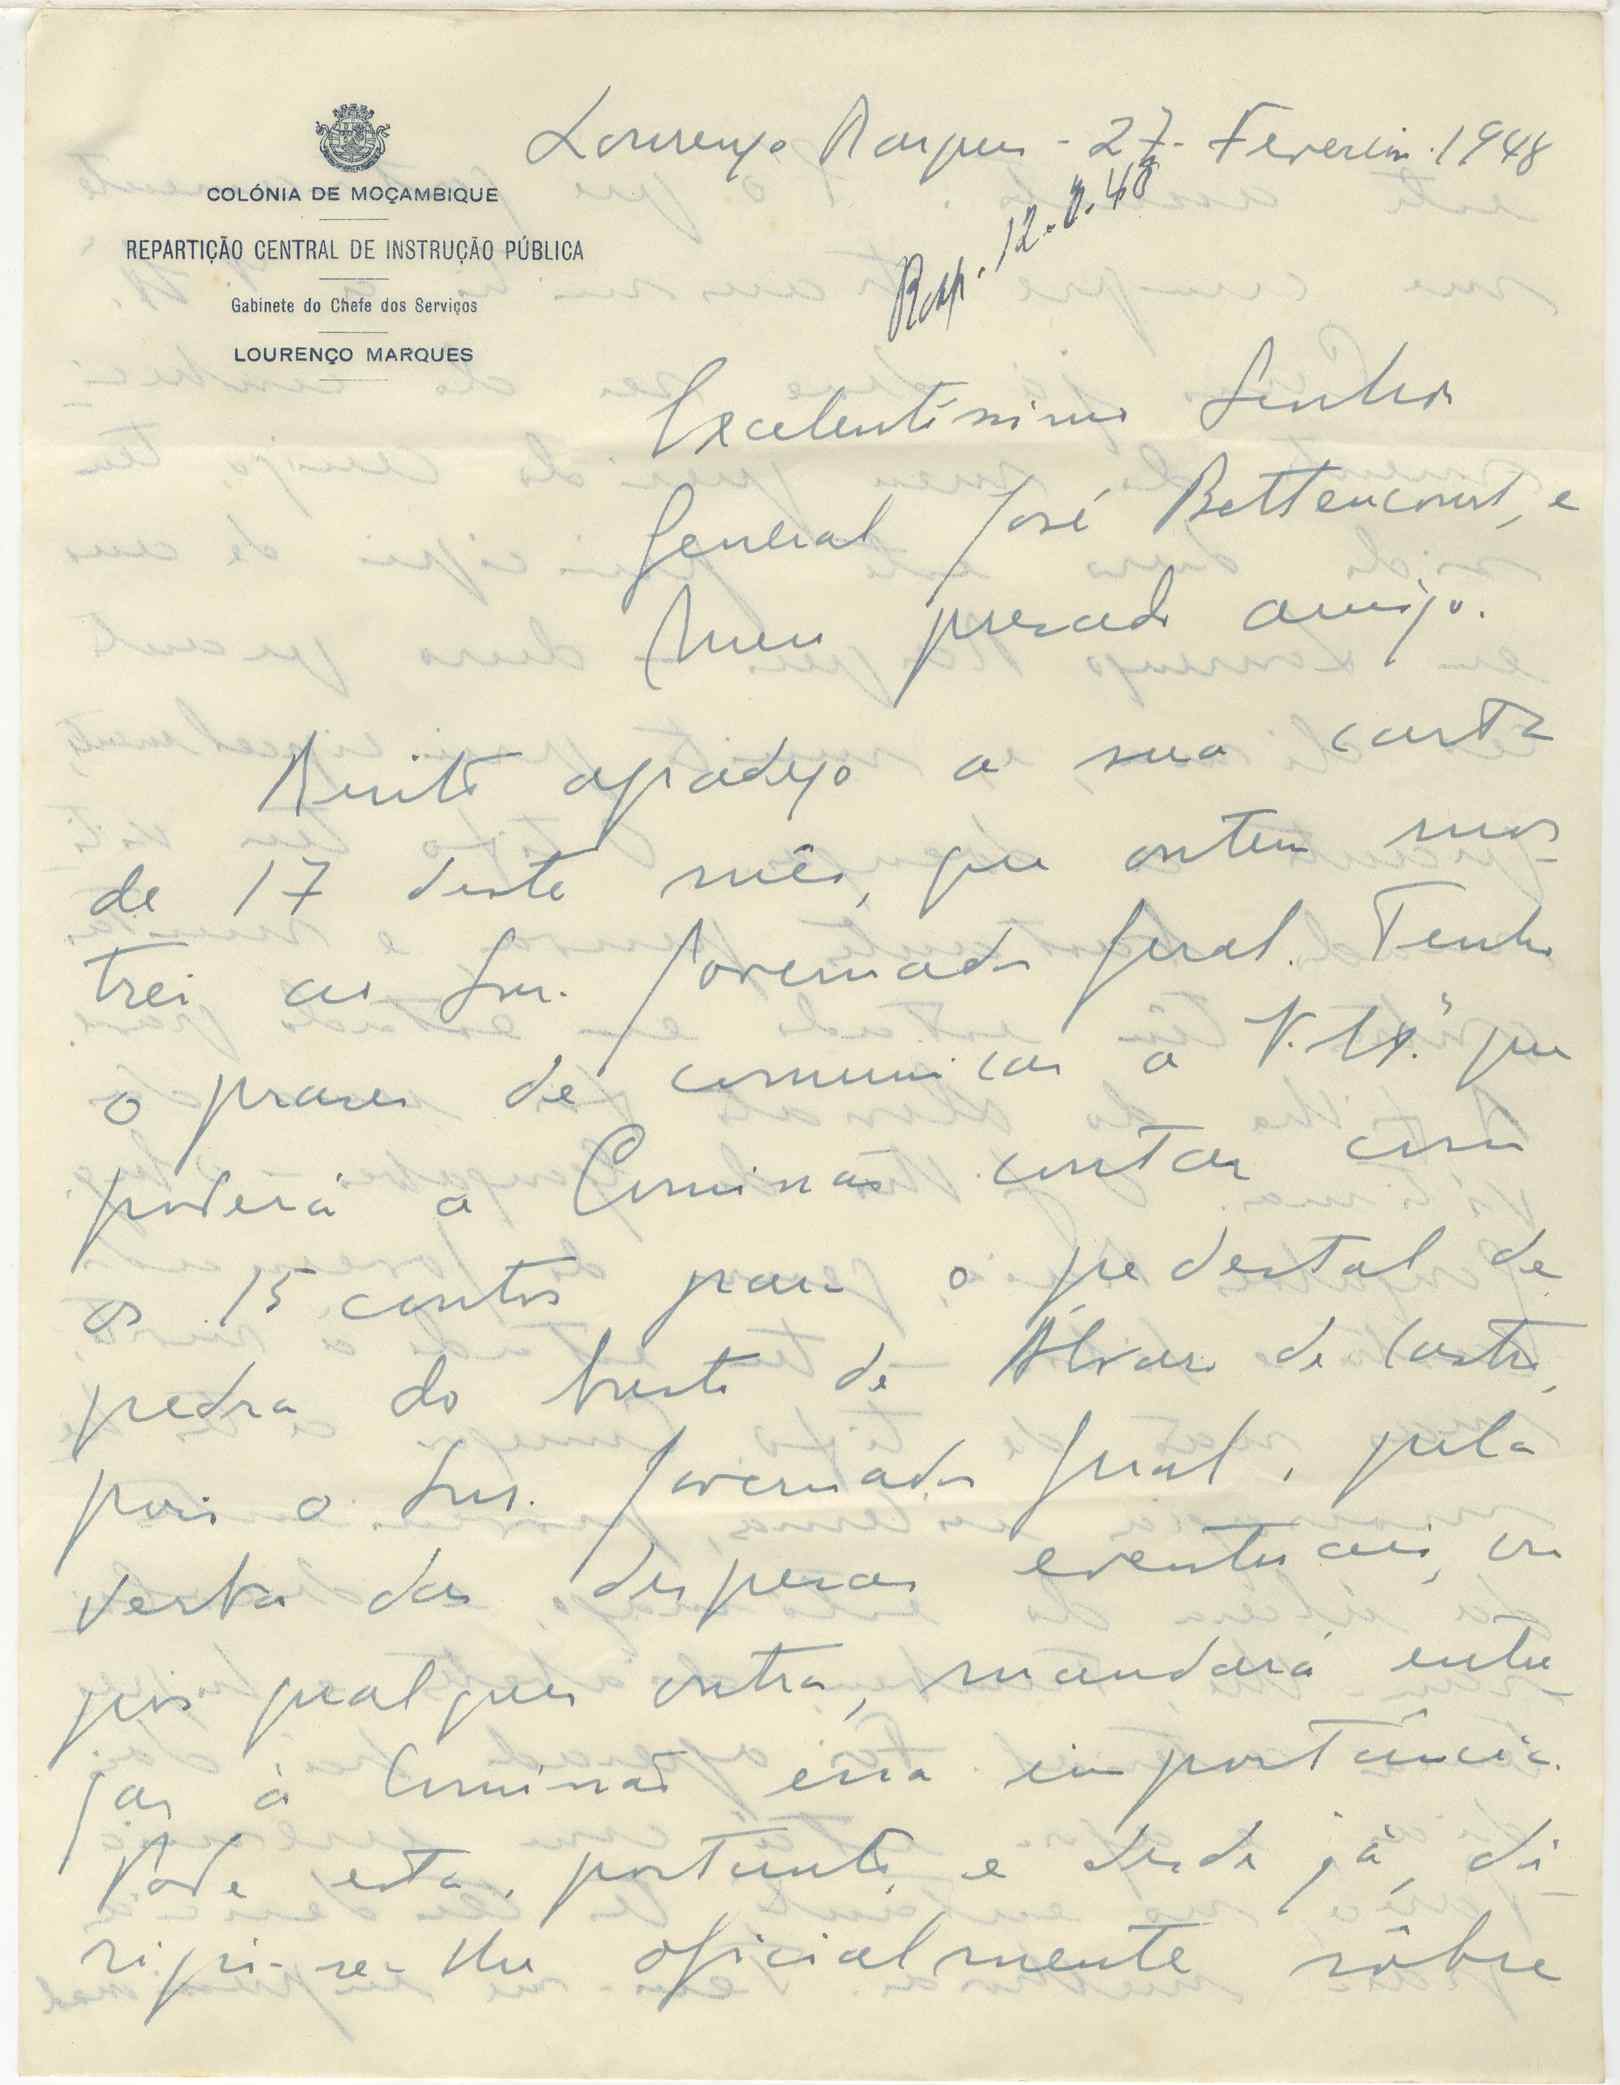 COLÓNIA DE MOÇAMBIQUE
REPARTIÇÃO CENTRAL DE INSTRUÇÃO PÚBLICA
Gabinete do Chefe dos Serviços
LOURENÇO MARQUES
Lourenço Marques - 27 - Fevereiro. 1948
Resp. 12.3.48
Excelentíssimo Senhor
General José Bettencourt, e
Meu prezado amigo.
Muito agradeço a sua carta
de 17 deste mês, que ontem mos-
trei ao Snr. Governador Geral. Tenho
o prazer de comunicar a V. Ex.ª que
poderá a Comissão contar com
os 15 contos para o pedestal de
pedra do busto de Álvaro de Castro,
pois o Snr. Governador Geral, pela
verba das despesas eventuais, ou
por qualquer outra, mandará entre-
gar à Comissão essa importância.
Pode esta, portanto, e desde já, di-
rigir-se-lhe oficialmente sôbre